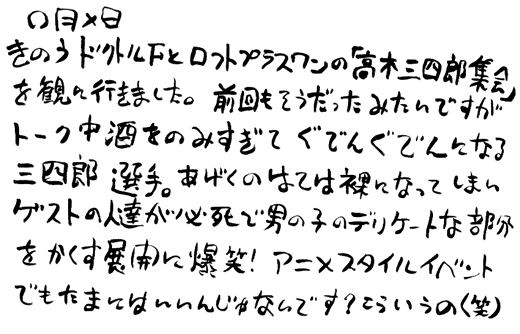 〇月×日
きのうドクトルFとロフトプラスワンの「高木三四郎集会」
を観に行きました。前回もそうだったみたいですが
トーク中酒をのみすぎてぐでんぐでんになる
三四郎選手。あげくのはては裸になってしまい
ゲストの人達が必死で男の子のデリケートな部分
をかくす展開に爆笑!アニメスタイルイベント
でもたまにはいいんじゃないです?こういうの(笑)